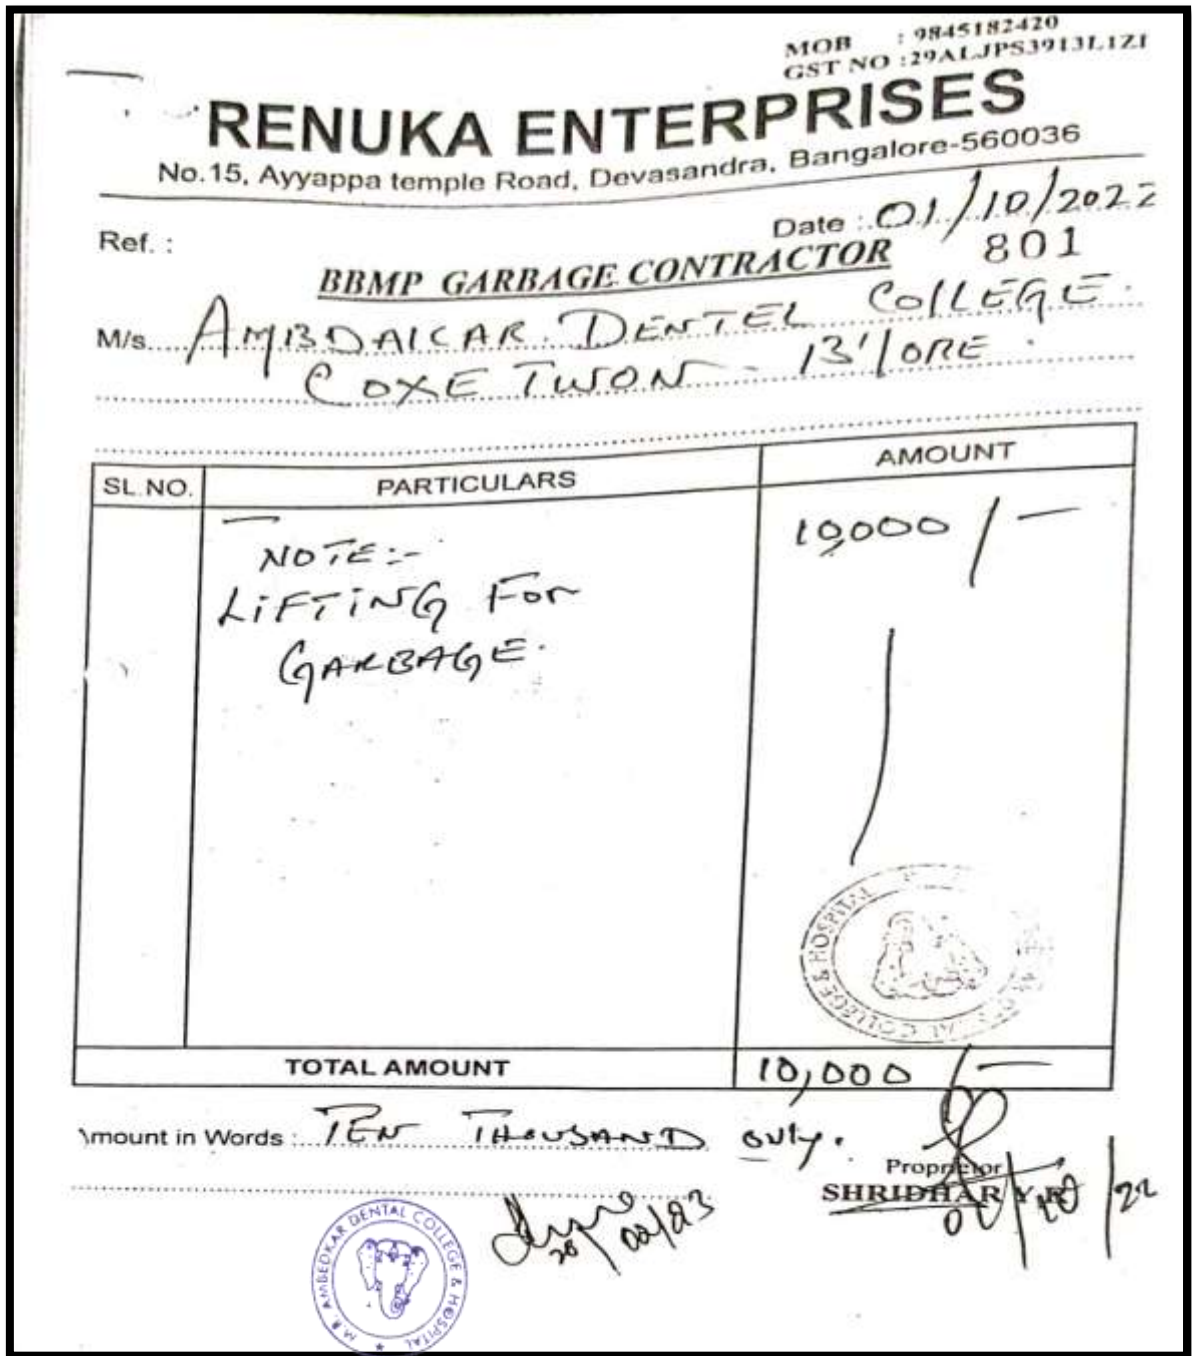 MOB : 9845182420
GST NO :29ALJPS3913L1ZI
RENUKA ENTERPRISES
No.15, Ayyappa temple Road, Devasandra, Bangalore-560036
Ref. :
Date : 01/10/2022
BBMP GARBAGE CONTRACTOR
801
M/s. AMBDAICAR DENTEL COllEGE.
COXE TWON - B'lORE.
SL.NO. PARTICULARS AMOUNT
NOTE:- 10,000/-
LiFTiNG For
GARBAGE.
& HOSPITAL
COLLEGE
TOTAL AMOUNT 10,000/-
Amount in Words : TEN THOUSAND only.
Proprietor
SHRIDHAR Y
01/10/22
M.R. AMBEDKAR DENTAL COLLEGE & HOSPITAL